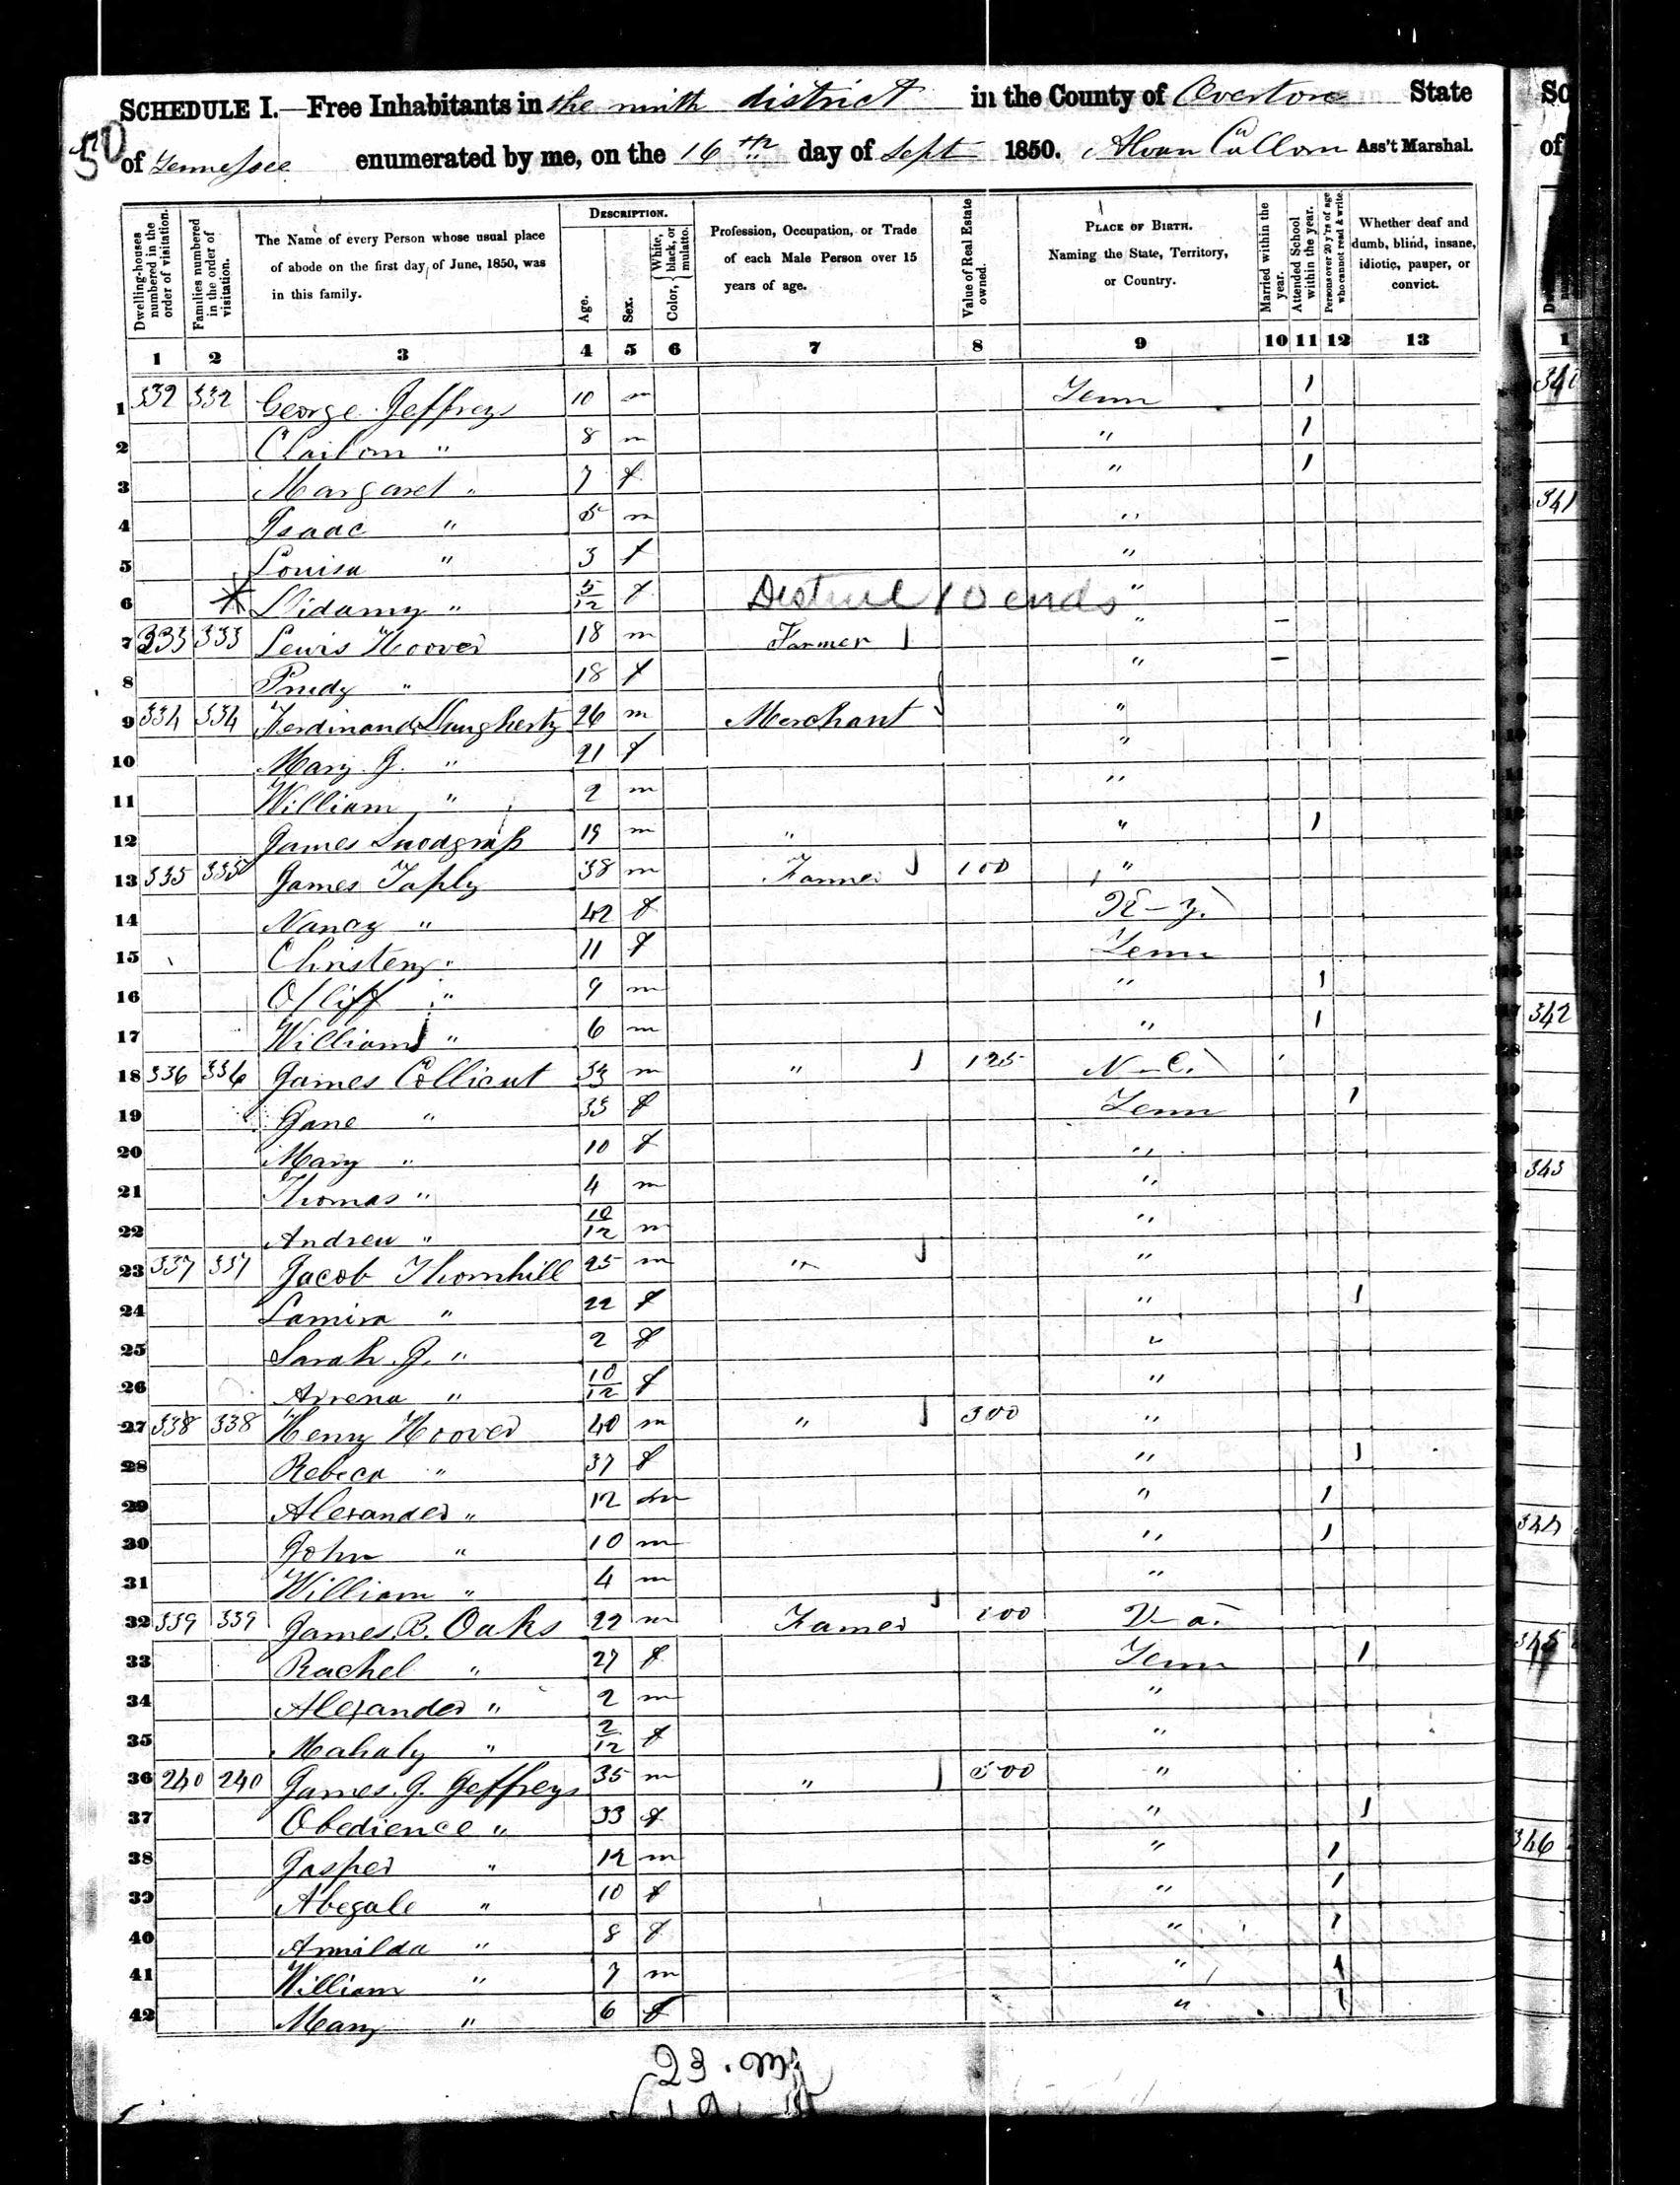 SCHEDULE I.—Free Inhabitants in the ninth district in the County of Overton State
50
of Tennessee enumerated by me, on the 16th day of Sept 1850. Alvan Cullom Ass't Marshal.
Dwelling-houses numbered in the order of visitation. Families numbered in the order of visitation. The Name of every Person whose usual place of abode on the first day of June, 1850, was in this family. DESCRIPTION. Age. Sex. Color, White, black, or mulatto. Profession, Occupation, or Trade of each Male Person over 15 years of age. Value of Real Estate owned. PLACE OF BIRTH. Naming the State, Territory, or Country. Married within the year. Attended School within the year. Persons over 20 y'rs of age who cannot read & write. Whether deaf and dumb, blind, insane, idiotic, pauper, or convict.
1 2 3 4 5 6 7 8 9 10 11 12 13
1 332 332 George Jeffreys 10 m Tenn 1
2 Claibom " 8 m " 1
3 Margaret " 7 f " 1
4 Isaac " 5 m "
5 Louisa " 3 f "
6 " 5/12 f District 10 ends "
7 333 333 Lewis Hoover 18 m Farmer " –
8 Prudy " 18 f " –
9 334 334 Ferdinand Daughertz 26 m Merchant "
10 Mary J. " 21 f "
11 William " 2 m "
12 James Snodgrass 19 m " " 1
13 335 335 James Taply 38 m Farmer 100 "
14 Nancy " 42 f K-y.
15 Christeny " 11 f Tenn
16 " 9 m " 1
17 William " 6 m " 1
18 336 336 James Collicut 33 m " 125 N-C.
19 Jane " 33 f Tenn 1
20 Mary " 10 f "
21 Thomas " 4 m "
22 Andrew " 10/12 m "
23 337 337 Jacob Thornhill 25 m " "
24 Lamira " 22 f " 1
25 Sarah J. " 2 f "
26 Arrena " 10/12 f "
27 338 338 Henry Hoover 40 m " 300 "
28 Rebeca " 37 f " 1
29 Alexander " 12 m " 1
30 John " 10 m " 1
31 William " 4 m "
32 339 339 James B. Oaks 22 m Farmer V-a.
33 Rachel " 27 f Tenn 1
34 Alexander " 2 m "
35 Mahaly " 2/12 f "
36 240 240 James J. Jeffreys 35 m " "
37 Obedience " 33 f " 1
38 Jasper " 12 m " 1
39 Abegale " 10 f " 1
40 Armilda " 8 f " 1
41 William " 7 m " 1
42 Mary " 6 f " 1
23. m
341
342
343
344
345
346